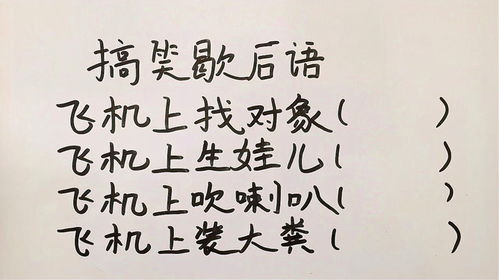 搞笑歇后语
飞机上找对象(        )
飞机上生娃儿(        )
飞机上吹喇叭(        )
飞机上装大粪(        )